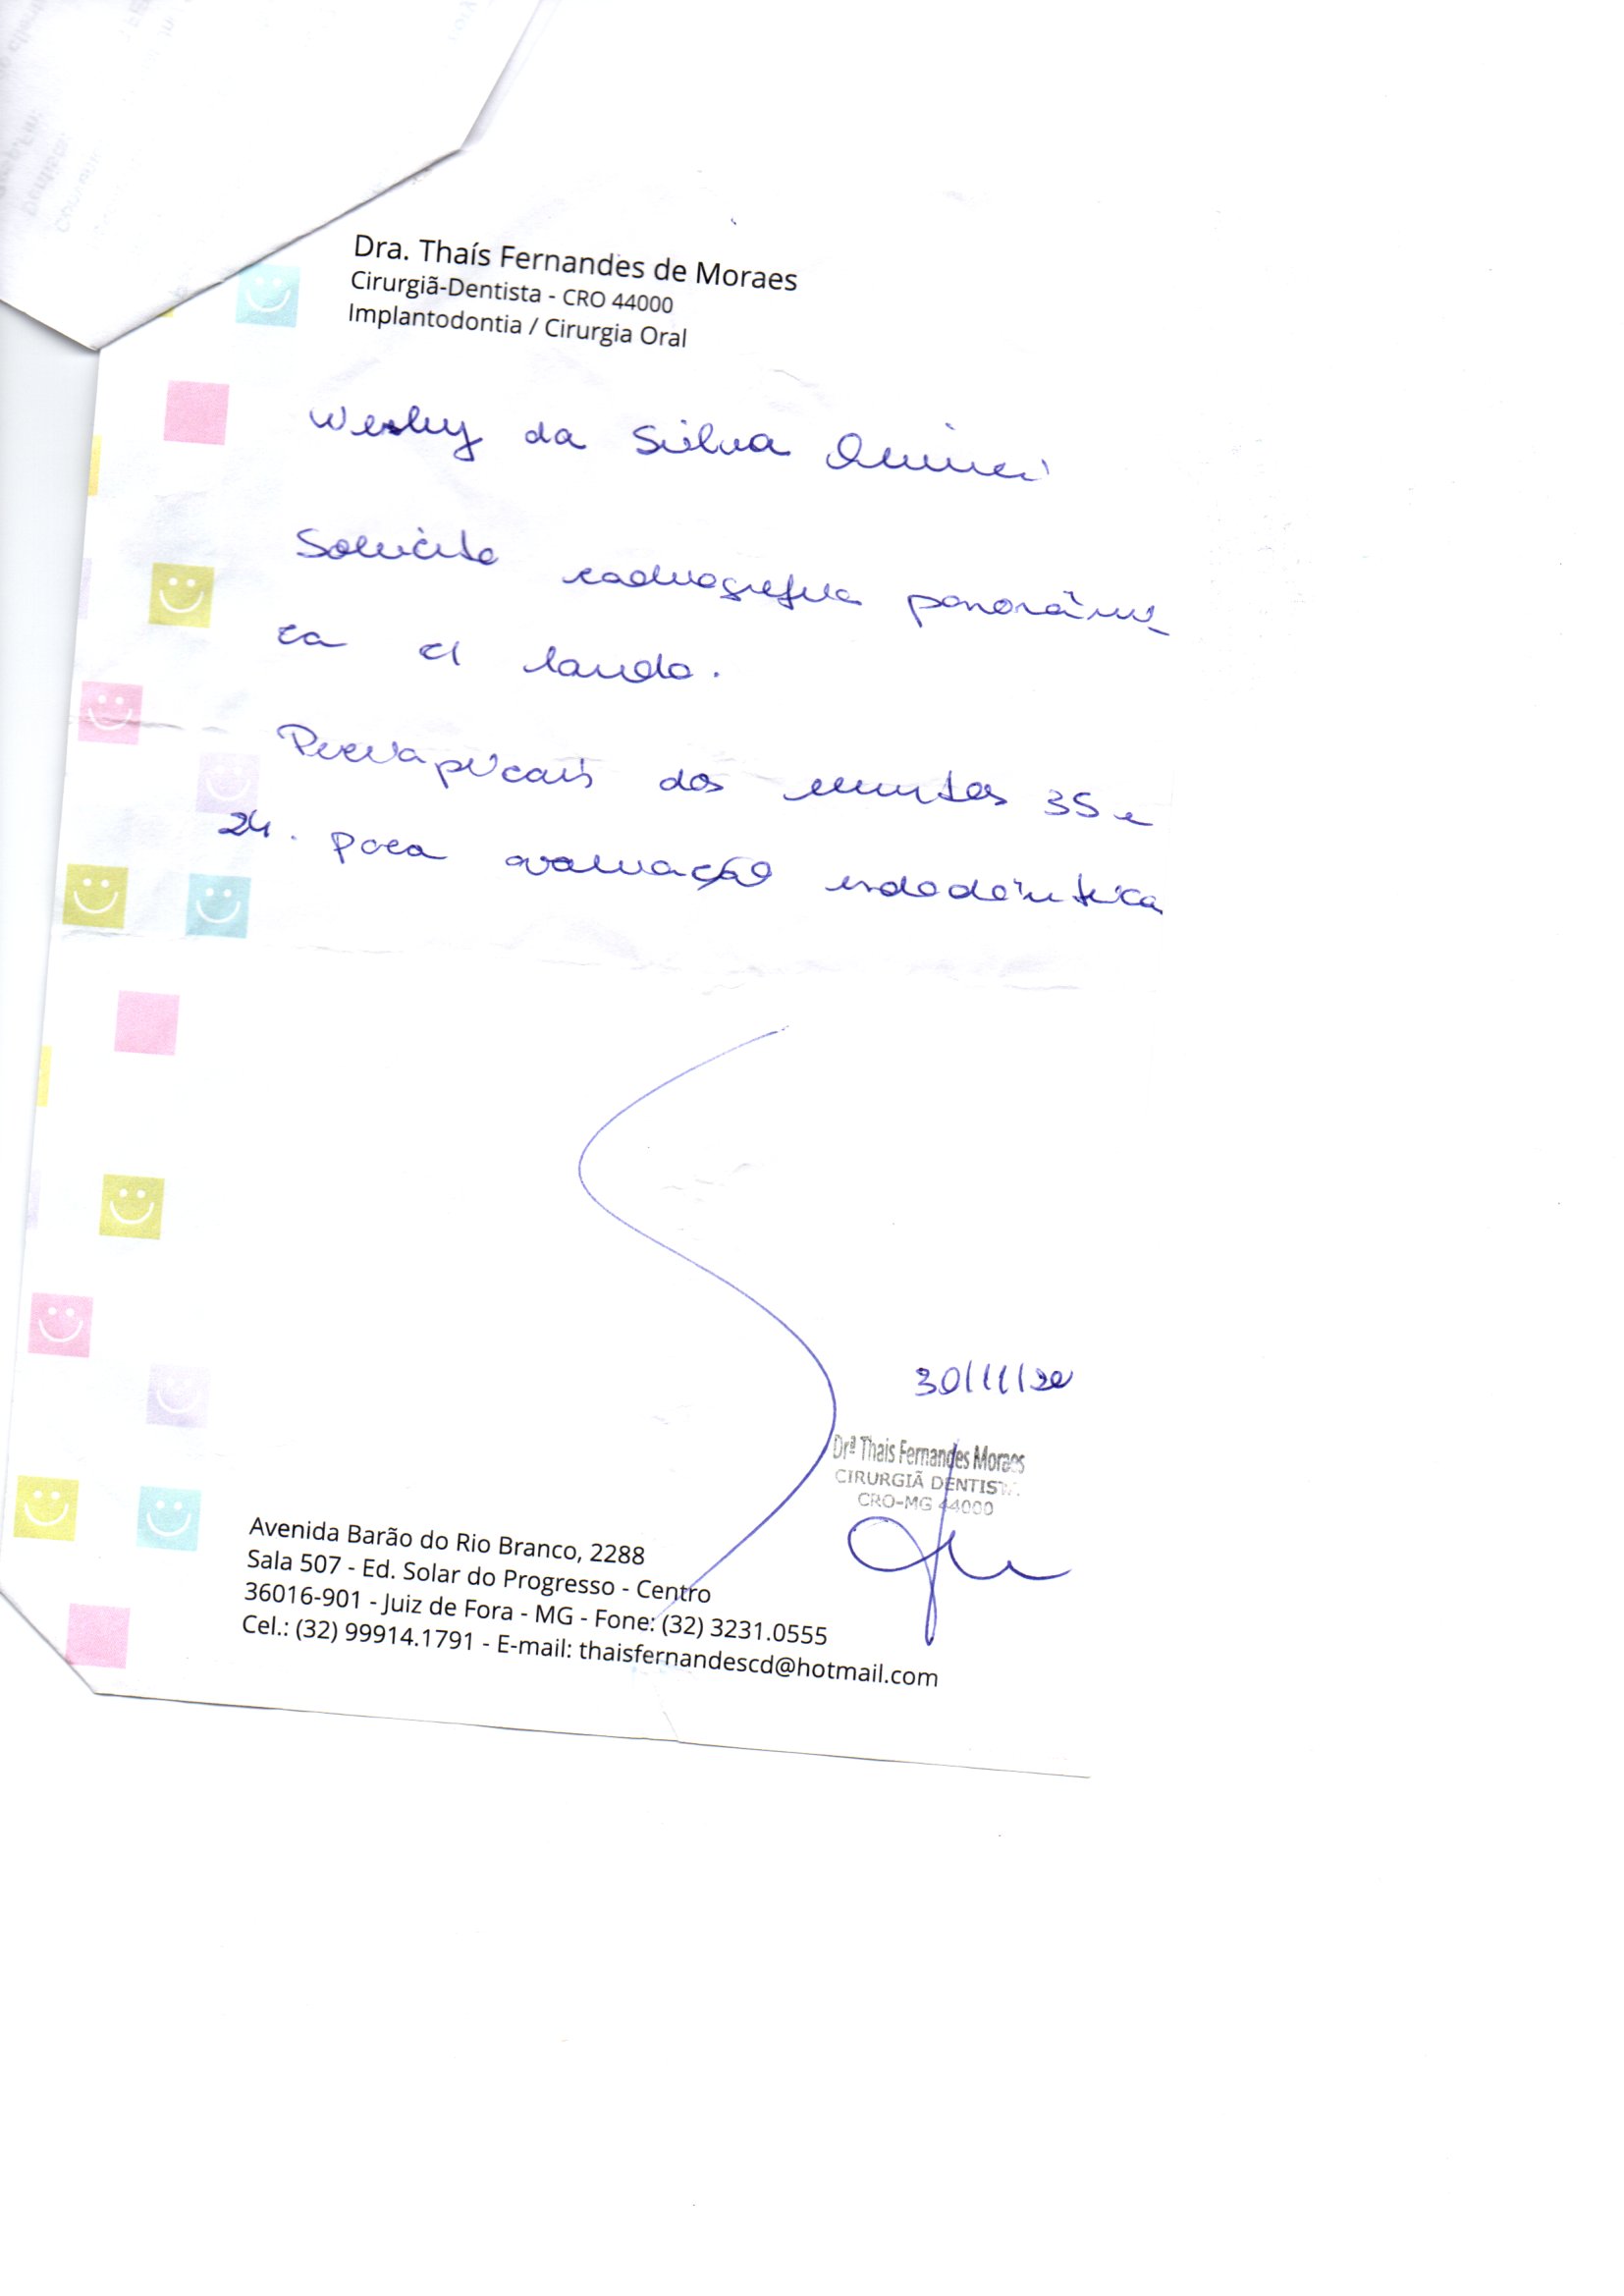 Dra. Thaís Fernandes de Moraes
Cirurgiã-Dentista - CRO 44000
Implantodontia / Cirurgia Oral
Wesley da Silva
Solicito radiografia panorâmi_
ca c/ laudo.
Periapicais dos elementos 35 e
24. para avaliação endodôntica
30/11/20
Drª Thais Fernandes Moraes
CIRURGIÃ DENTISTA
CRO-MG 44000
Avenida Barão do Rio Branco, 2288
Sala 507 - Ed. Solar do Progresso - Centro
36016-901 - Juiz de Fora - MG - Fone: (32) 3231.0555
Cel.: (32) 99914.1791 - E-mail: thaisfernandescd@hotmail.com